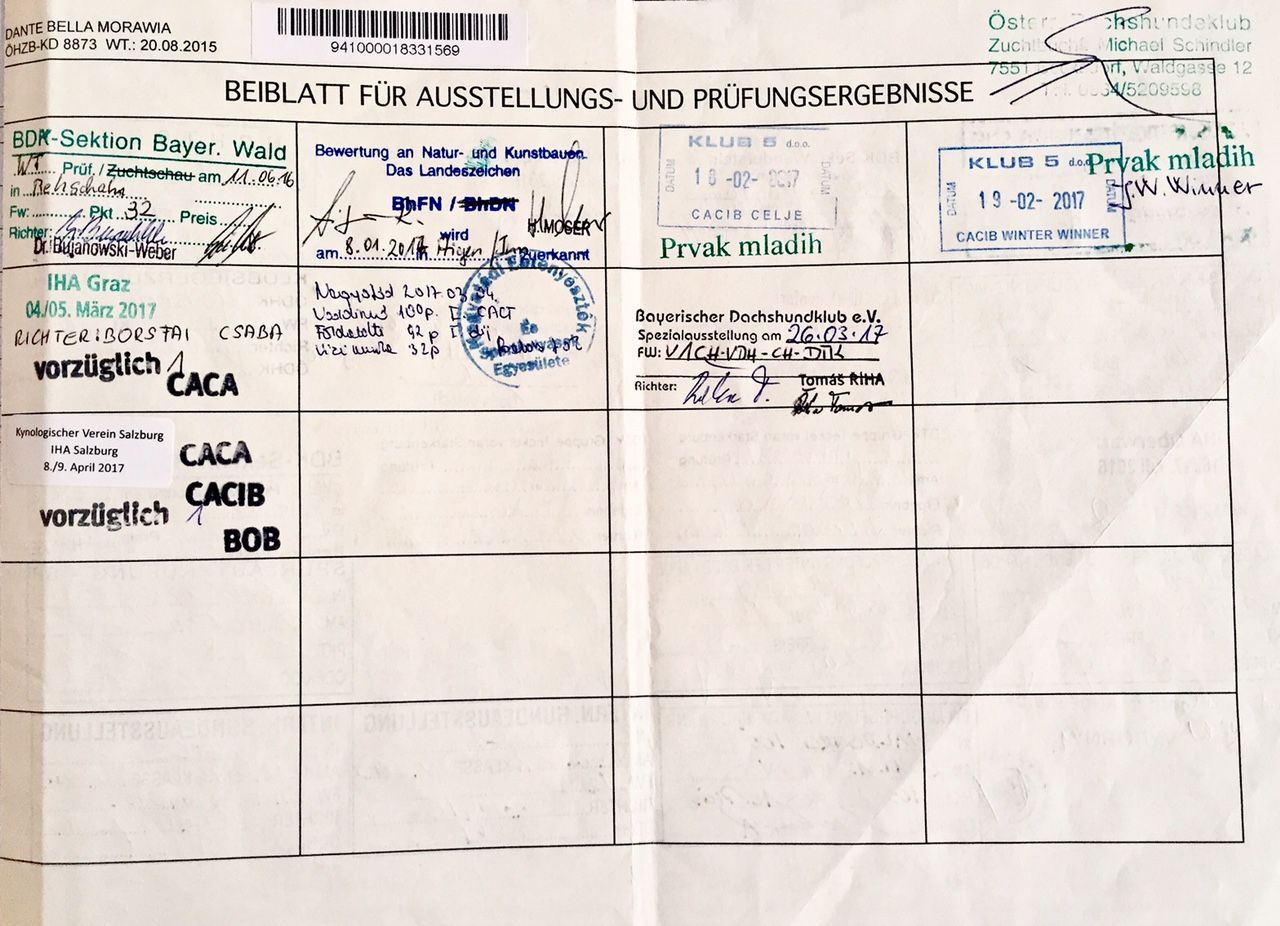 DANTE BELLA MORAWIA
ÖHZB-KD 8873 WT.: 20.08.2015
941000018331569
Öster. Dachshundeklub
Michael Schindler
7551 Waldgasse 12
BEIBLATT FÜR AUSSTELLUNGS- UND PRÜFUNGSERGEBNISSE
BDK-Sektion Bayer. Wald
Prüf / Zuchtschau am 11.06.16
in
Fw: Pkt 32 Preis
Richter:
Dr. Bujanowski-Weber
Bewertung an Natur- und Kunstbauen
Das Landeszeichen
BhFN / BhDN
H. MOSER
wird
am 8.01.2017 in zuerkannt
KLUB 5 d.o.o.
DATUM
18 -02- 2017
DATUM
CACIB CELJE
Prvak mladih
KLUB 5 d.o.o.
Prvak mladih
DATUM
19 -02- 2017
DATUM
J.W. Winner
CACIB WINTER WINNER
IHA Graz
04/05. März 2017
RICHTER: BORSTAI CSABA
vorzüglich 1
CACA
2017.03.04.
100p. I. CACT
92p I. díj
32p
Egyesülete
Bayerischer Dachshundklub e.V.
Spezialausstellung am 26.03.17
FW: V1 CH-VDH-CH-DTK
Richter:
Tomáš ŘIHA
Kynologischer Verein Salzburg
IHA Salzburg
8./9. April 2017
CACA
CACIB
vorzüglich 1
BOB